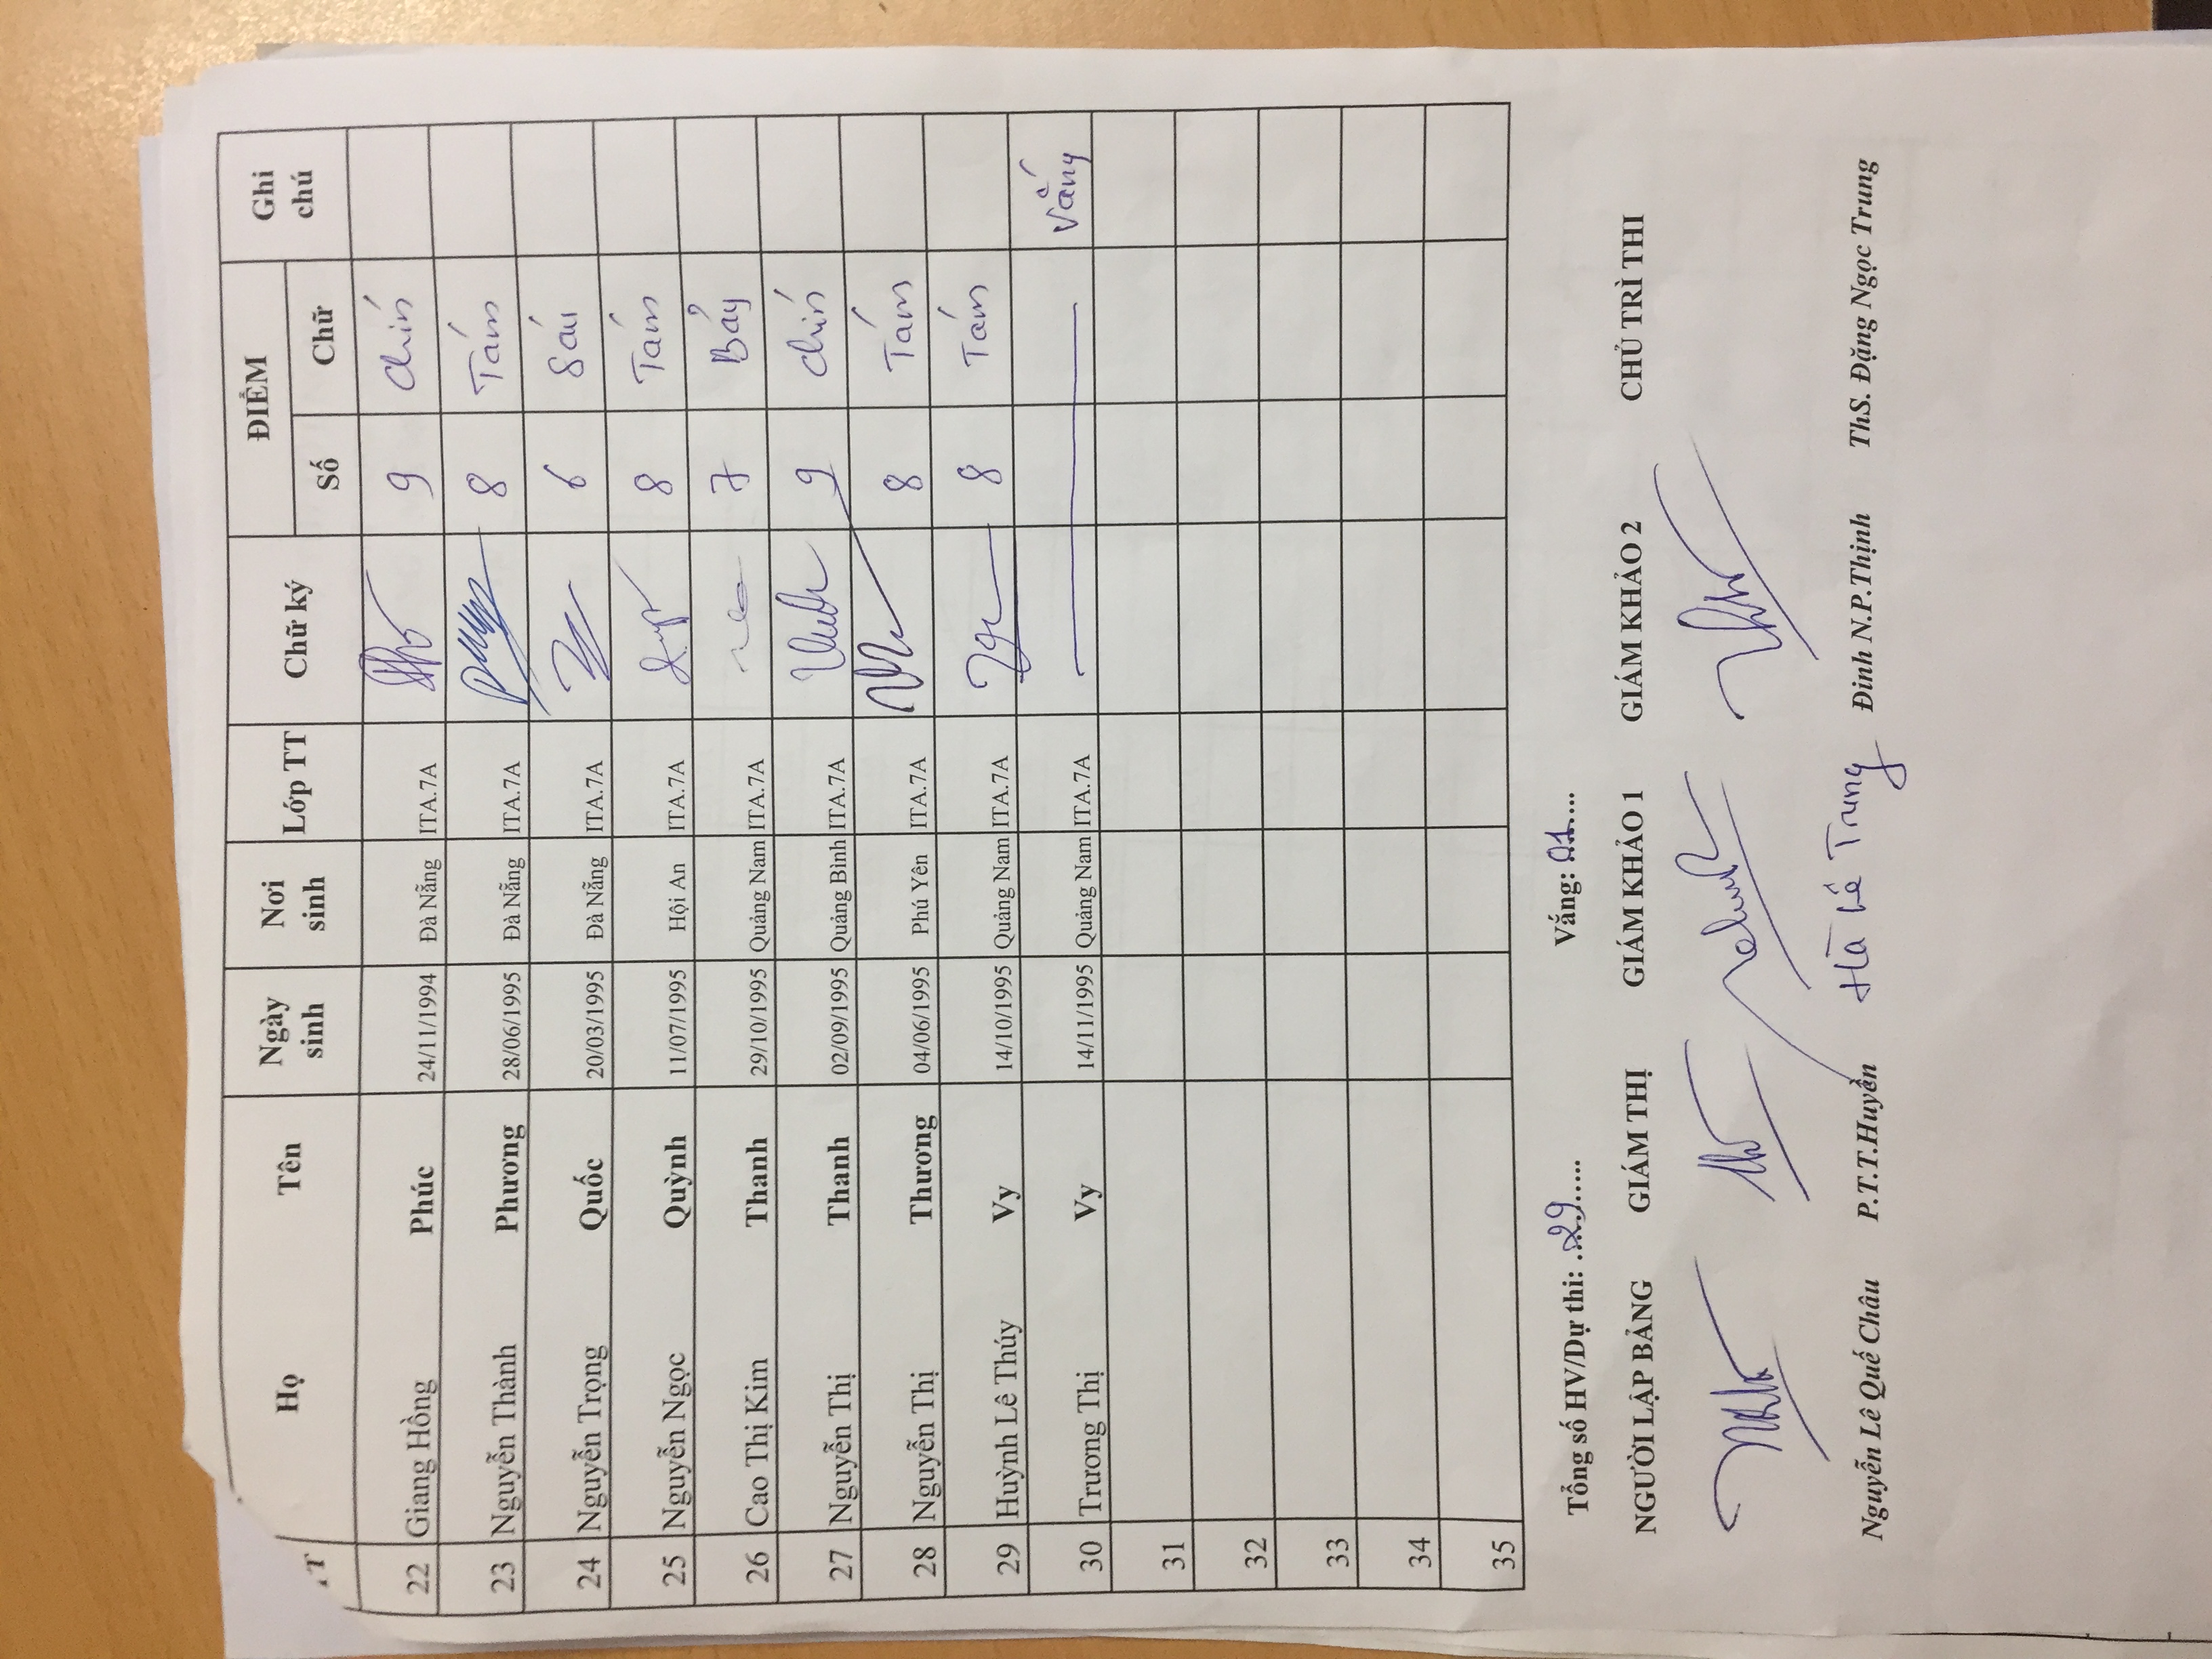 TT Họ Tên Ngày sinh Nơi sinh Lớp TT Chữ ký ĐIỂM Ghi chú
Số Chữ
22 Giang Hồng Phúc 24/11/1994 Đà Nẵng ITA.7A 9 Chín
23 Nguyễn Thành Phương 28/06/1995 Đà Nẵng ITA.7A 8 Tám
24 Nguyễn Trọng Quốc 20/03/1995 Đà Nẵng ITA.7A 6 Sáu
25 Nguyễn Ngọc Quỳnh 11/07/1995 Hội An ITA.7A 8 Tám
26 Cao Thị Kim Thanh 29/10/1995 Quảng Nam ITA.7A 7 Bảy
27 Nguyễn Thị Thanh 02/09/1995 Quảng Bình ITA.7A 9 Chín
28 Nguyễn Thị Thương 04/06/1995 Phú Yên ITA.7A 8 Tám
29 Huỳnh Lê Thúy Vy 14/10/1995 Quảng Nam ITA.7A 8 Tám
30 Trương Thị Vy 14/11/1995 Quảng Nam ITA.7A Vắng
31
32
33
34
35
Tổng số HV/Dự thi: ..29...... Vắng: 01.....
NGƯỜI LẬP BẢNG GIÁM THỊ GIÁM KHẢO 1 GIÁM KHẢO 2 CHỦ TRÌ THI
Nguyễn Lê Quế Châu P.T.T.Huyền Hà Lê Trung Đinh N.P.Thịnh ThS. Đặng Ngọc Trung